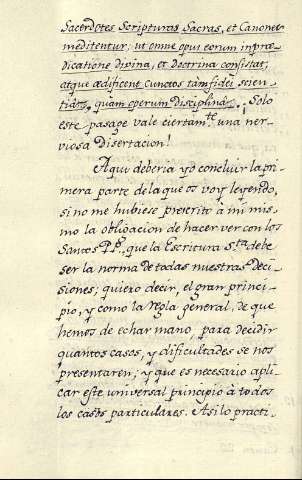 Sacerdotes Scripturas Sacras, et Canones
meditentur; ut omne opus eorum in præ-
dicatione divina, et doctrina consistat;
atque ædificent cunctos tàm fidei scien-
tiâ, quam operum disciplinâ. ¡Solo
este pasage vale ciertamte una ner-
viosa Disertacion!
Aqui deberia yo concluir la pri-
mera parte de la que os voy leyendo,
si no me hubiese prescrito à mi mis-
mo la obligacion de hacer ver con los
Santos PP.s, que la Escritura S.ta debe
ser la norma de todas nuestras deci-
siones; quiero decir, el gran princi-
pio, y como la regla general, de que
hemos de echar mano, para decidir
quantos casos, y dificultades se nos
presentaren; y que es necesario apli-
car este universal principio à todos
los casos particulares. Asi lo practi-